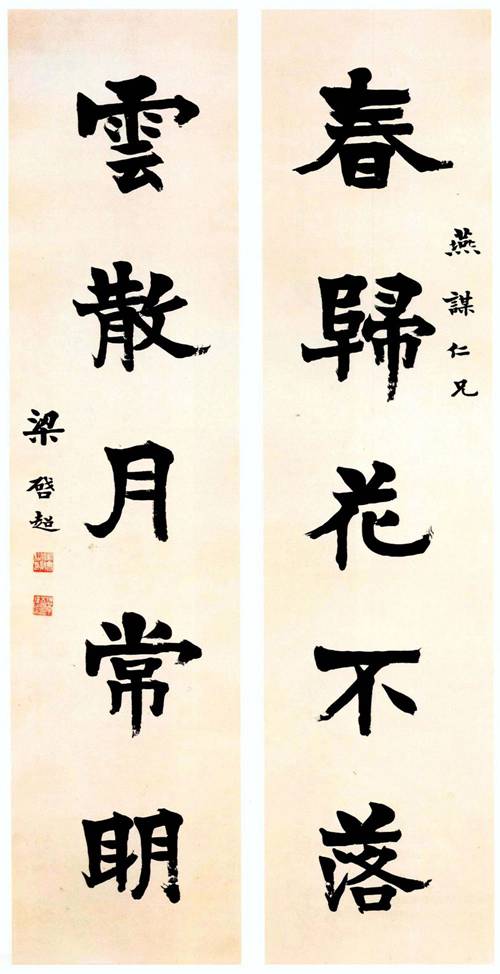 燕謀仁兄
春歸花不落
雲散月常明
梁啓超